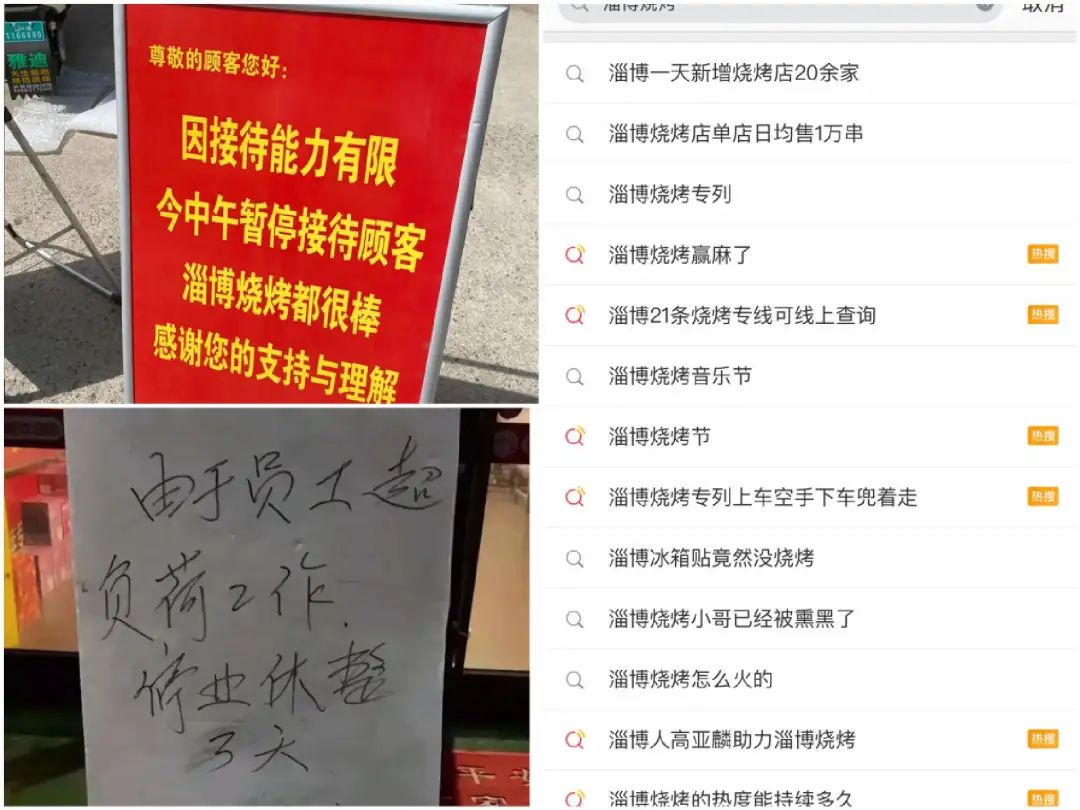 1166898
雅迪
尊敬的顾客您好:
因接待能力有限
今中午暂停接待顾客
淄博烧烤都很棒
感谢您的支持与理解
由于员工超
负荷工作.
停业休整
3天
淄博烧烤
取消
淄博一天新增烧烤店20余家
淄博烧烤店单店日均售1万串
淄博烧烤专列
淄博烧烤赢麻了
热搜
淄博21条烧烤专线可线上查询
热搜
淄博烧烤音乐节
淄博烧烤节
热搜
淄博烧烤专列上车空手下车兜着走
热搜
淄博冰箱贴竟然没烧烤
淄博烧烤小哥已经被熏黑了
淄博烧烤怎么火的
淄博人高亚麟助力淄博烧烤
热搜
淄博烧烤的热度能持续多久
热搜